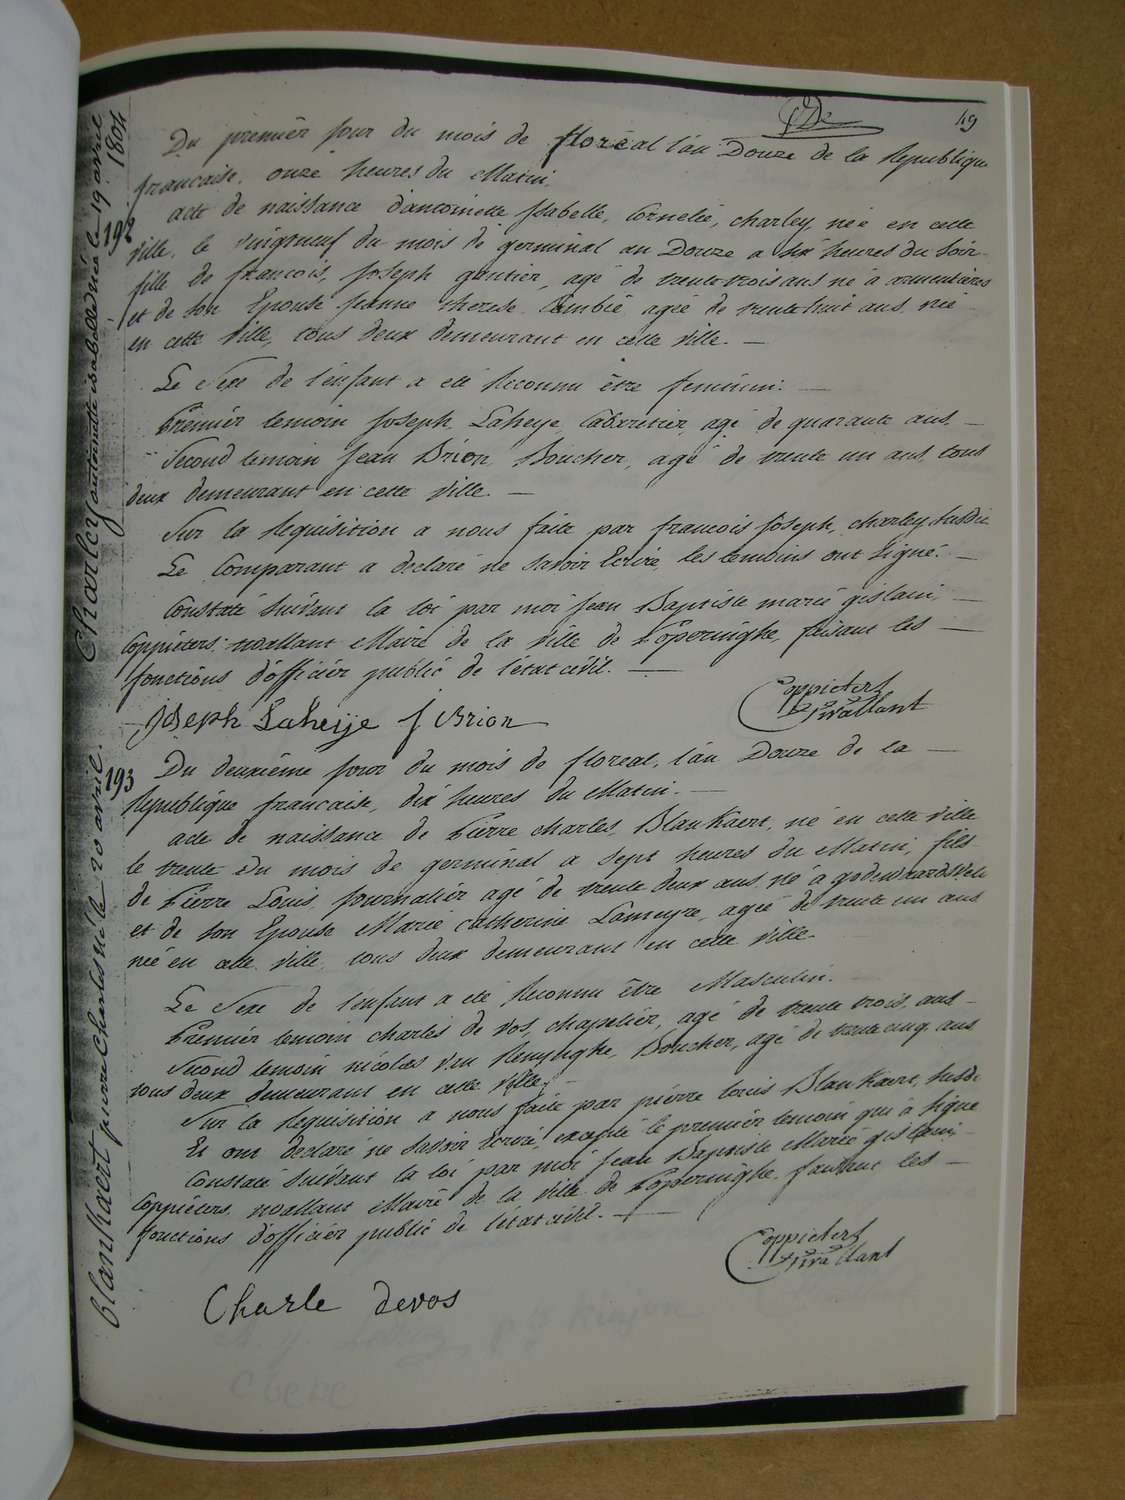 49
Du premiér jour du mois de floréal l'an Douze de la Republique
francaise, onze heures du Matin,
acte de naissance d'antoinette Isabelle, Cornelie, charley, neé en cette
ville, le vingtneuf du mois de germinal an Douze a six heures du soir
fille de francois, Joseph agé de trente trois ans né à armentières
et de son Epouse jeanne therese Cambié ageé de trente huit ans, neé
en cette ville, tous deux demeurant en cette ville. —
Le Sexe de l'enfant a eté Reconnu être feminin. —
Premiér temoin Joseph Laheye Cabaretier, agé de quarante ans —
Second temoin Jean Brion, Boucher, agé de trente un ans, tous
deux demeurant en cette ville. —
Sur la Requisition a nous faite par francois joseph, charley susdit
Le Comparant a declaré ne savoir Ecrire, les temoins ont signé. —
Constaté suivant la loi par moi Jean Baptiste marie gislain, —
Coppieters Maire de la ville de Poperinghe, faisant les —
fonctions d'officiér public de l'état civil. —
Joseph Laheije J Brion
Coppieters
192
Charley antoinette isabelle née le 19 avril
1804
193
Du deuxième jour du mois de floreal, l'an Douze de la —
Republique francaise, dix heures du Matin. —
acte de naissance de Piérre charles, Blankaert, né en cette ville
le trente du mois de germinal a sept heures du Matin, fils
de Piérre Louis, journaliér agé de trente deux ans, né à
et de son Epouse Marie catherine Lameyre, ageé de trente un ans
neé en cette ville, tous deux demeurant en cette ville.
Le Sexe de l'enfant a eté Reconnu être Masculin.
Premiér temoin charles de vos, chapeliér, agé de trente trois, ans —
Second temoin nicolas van Renynghe, Boucher, agé de trente cinq ans
tous deux demeurant en cette ville, —
Sur la Requisition a nous faite par piérre louis Blankaert, susd.
Et ont declaré ne savoir ecrire, excepté le premiér temoin qui à signe
Constaté suivant la loi par moi Jean Baptiste Marie gislain, —
Coppiéters Maire de la ville de Poperinghe, faisant les —
fonctions d'officiér public de l'état civil. —
Coppieters
Charle devos
blankaert pierre Charles né le 20 avril.